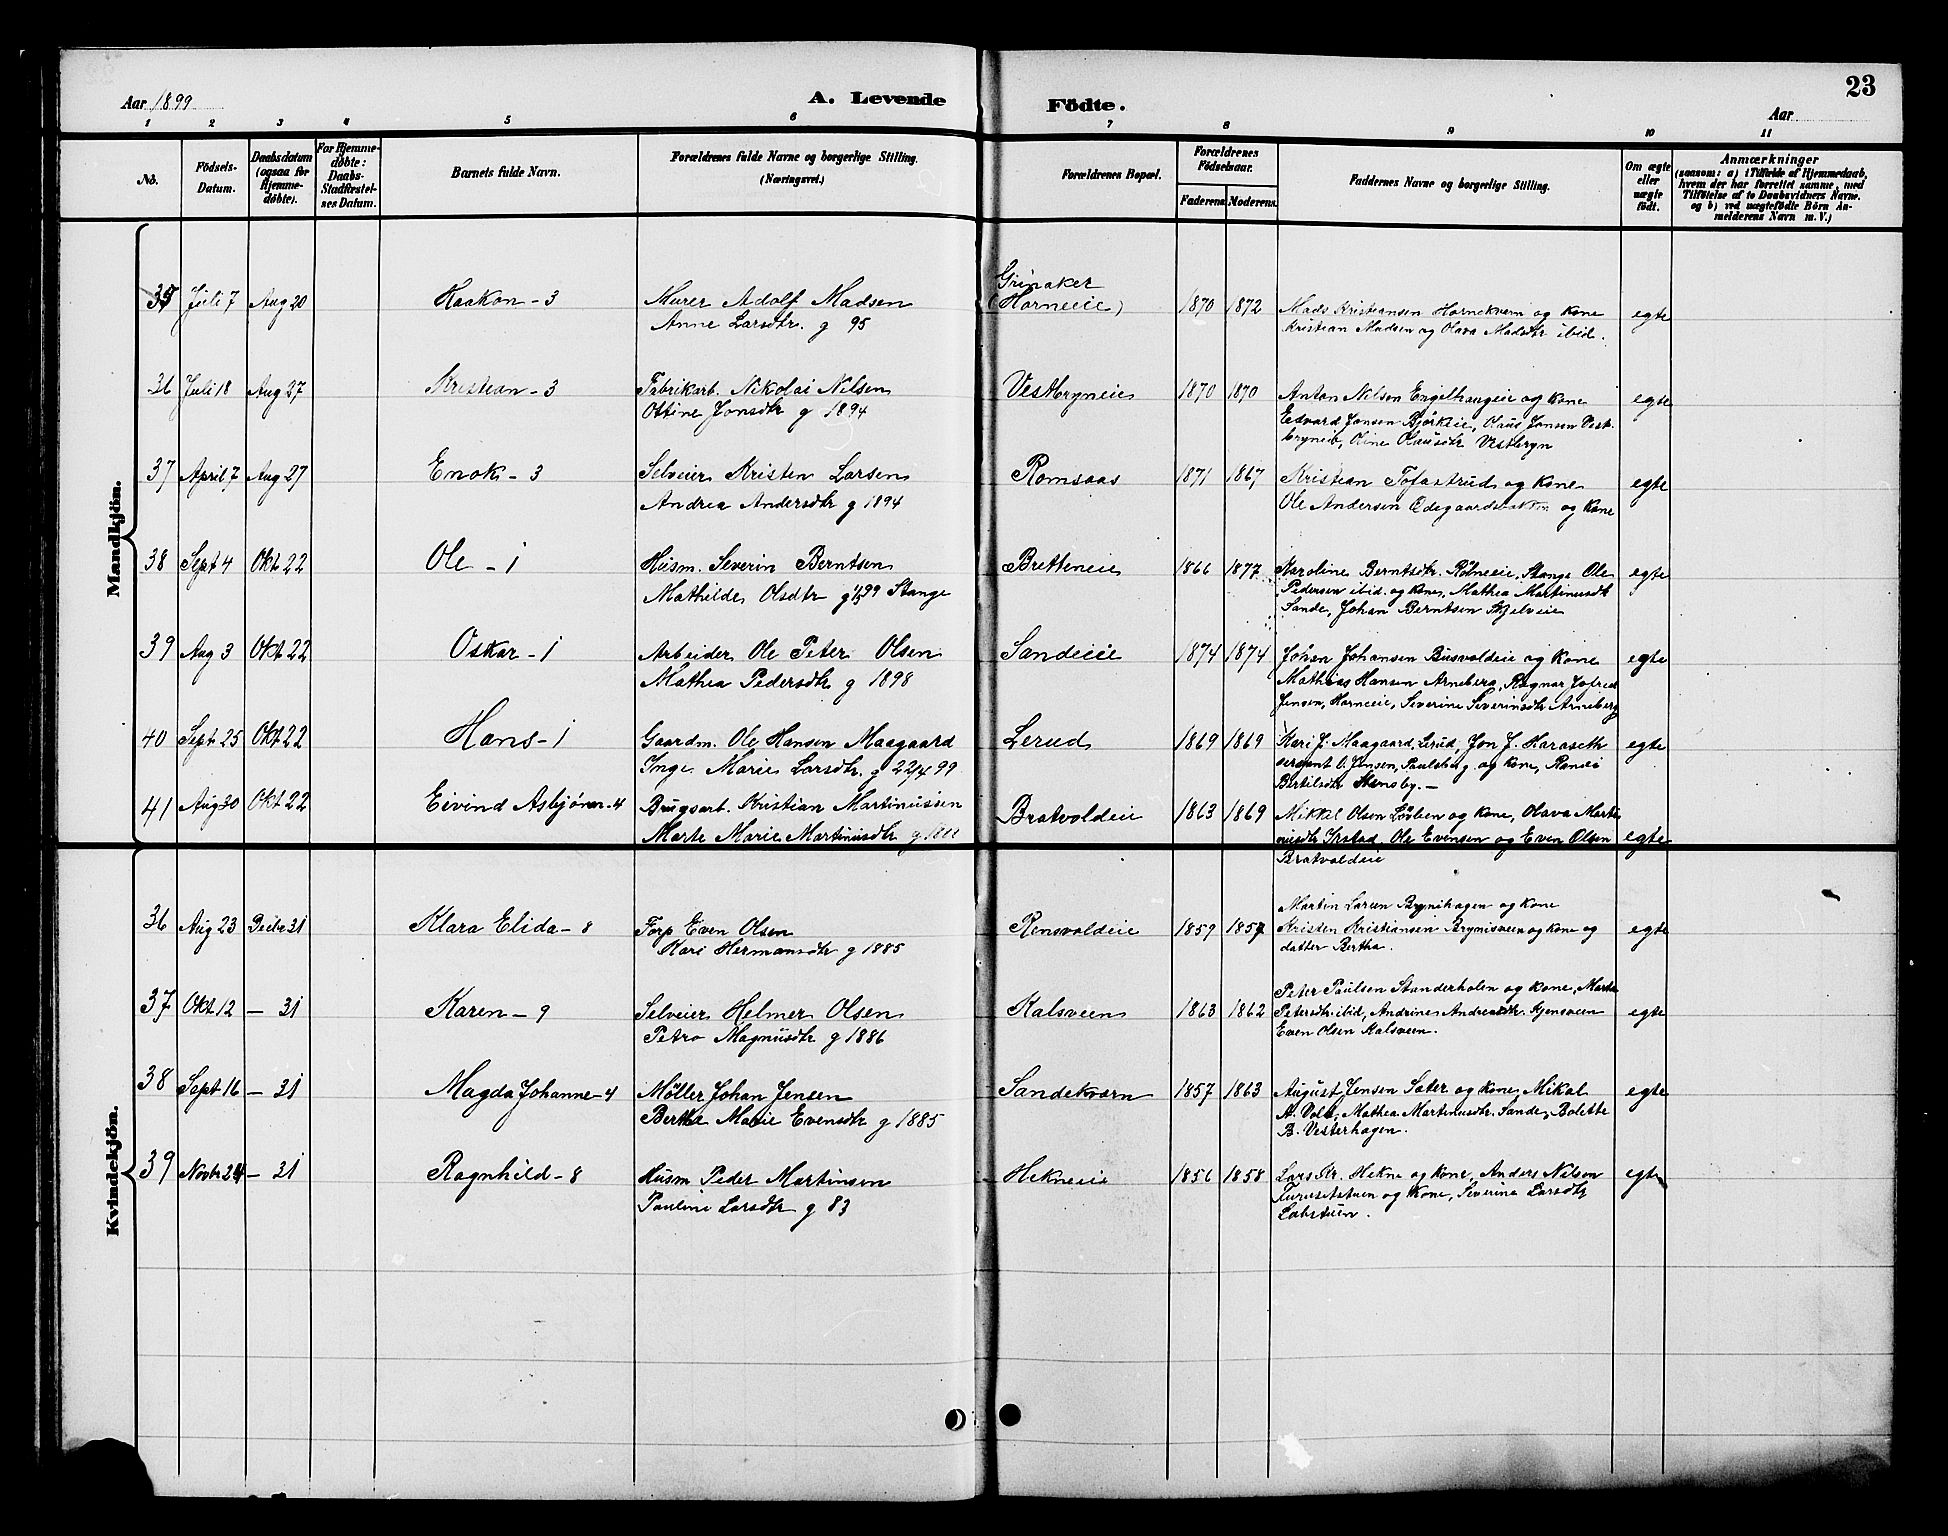 23
Aar 1899
A. Levende
Födte.
Aar
1 2 3 4 5 6 7 8 9 10 11
No.
Födsels-Datum.
Daabsdatum (ogsaa for Hjemme-döbte).
For Hjemme-döbte: Daabs-Stadfæstel-ses Datum.
Barnets fulde Navn.
Forældrenes fulde Navne og borgerlige Stilling. (Næringsvei.)
Forældrenes Bopæl.
Forældrenes Födselsaar.
Faderens Moderens
Faddernes Navne og borgerlige Stilling.
Om ægte eller uægte födt.
Anmærkninger
(saasom: a) i Tilfælde af Hjemmedaab,
hvem der har forrettet samme, med
Tilföielse af to Daabsvidners Navne.
og b) ved uægtefödte Börn An-
melderens Navn m. V.)
Mandkjön.
35 Juli 7 Aug 20 Haakon - 3 Murer Adolf Madsen
Anne Larsdtr. g 95
Grinaker
(Horneeie) 1870 1872 Mads Kristiansen Hornekvern og kone
Kristian Madsen og Olava Madsdtr ibid. egte
36 Juli 18 Aug 27 Kristian - 3 Fabrikarb. Nikolai Nilsen
Ottine Jonsdtr g 1894
Vestbryneie 1870 1870 Anton Nilsen Engelhaugeie og kone
Edvard Jonsen Bjørkeie, Olaus Jonsen Vest-
bryneie, Oline Olausdtr Vestbryn egte
37 April 7 Aug 27 Enok - 3 Selveier Kristen Larsen
Andrea Andersdtr g 1894
Romsaas 1871 1867 Kristian Tofastrud og kone
Ole Andersen Ødegaardsbakken og kone egte
38 Sept 4 Okt 22 Ole - 1 Husm. Severin Berntsen
Mathilde Olsdtr g 99 Stange
Bretteneie 1866 1877 Karoline Berntsdtr. Røhneeie, Stange Ole
Pedersen ibid. og kone, Mathea Martinusdtr
Sande, Johan Berntsen Skjelveie egte
39 Aug 3 Okt 22 Oskar - 1 Arbeider Ole Peter Olsen
Mathea Pedersdtr g 1898
Sandeeie 1874 1874 Johan Johansen Busvoldeie og kone
Mathias Hansen Arneberg, Ragnar Jofred
Jensen, Horneeie, Severine Severinsdtr Arneberg egte
40 Sept 25 Okt 22 Hans - 1 Gaardm. Ole Hansen Maagaard
Inge Marie Larsdtr. g 22/4 99
Lerud 1869 1869 Kari J. Maagaard, Lerud, Jon J. Haraseth
sersjant O. Jensen, Paulsberg og kone, Randi
Bertilsdtr Stensby. — egte
41 Aug 30 Okt 22 Eivind Asbjörn - 4 Brugsarb. Kristian Martinussen
Marte Marie Martinusdtr g
Bratvoldeie 1863 1869 Mikkel Olsen Løbben og kone, Olava Marti-
nusdtr Irstad, Ole Evensen og Even Olsen
Bratvoldeie egte
Kvindekjön.
36 Aug 23 Decbr 31 Klara Elida - 8 Forp Even Olsen
Kari Hermansdtr g 1885
Rensvoldeie 1859 1857 Martin Larsen Brynihagen og kone
Kristen Kristiansen Brynisveen og kone og
datter Bertha. egte
37 Okt 12 — 31 Karen - 9 Selveier Helmer Olsen
Petra Magnusdtr g 1886
Kalsveen 1863 1862 Peter Paulsen Standerholen og kone, Marte
Petersdtr ibid, Andrine Andreasdtr. Kjensveen
Even Olsen Kalsveen. egte
38 Sept 16 — 31 Magda Johanne - 4 Møller Johan Jensen
Berthe Marie Evensdtr g 1885
Sandekværn 1857 1863 August Jensen Sæter og kone, Mikal
A. Vold, Mathea Martinusdtr. Sande, Bolette
B. Vesterhagen. egte
39 Novbr 24 — 31 Ragnhild - 8 Husm Peder Martinsen
Pauline Larsdtr g 83
Hekneeie 1856 1858 Lars Kr. Hekne og kone, Anders Nilsen
Furusetstuen og kone, Severine Larsdtr
Løbstuen. egte